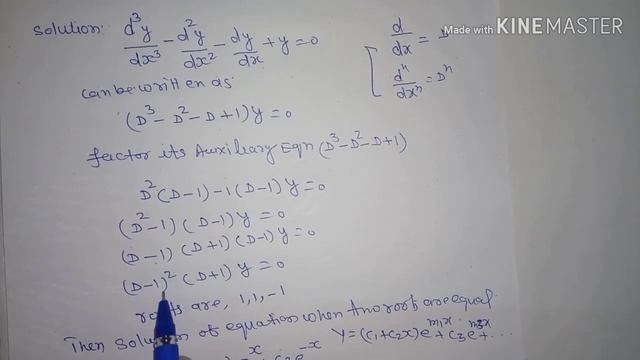 Made with KINEMASTER
Solution: d³y/dx³ - d²y/dx² - dy/dx + y = 0
d/dx = D
dⁿ/dxⁿ = Dⁿ
can be written as
(D³ - D² - D + 1) y = 0
factor its Auxiliary Eqn (D³ - D² - D + 1)
D² (D-1) - 1 (D-1) y = 0
(D² - 1) (D-1) y = 0
(D-1) (D+1) (D-1) y = 0
(D-1)² (D+1) y = 0
roots are, 1, 1, -1
Then Solution of equation when two root are equal
y = (c₁ + c₂x) e^{m₁x} + c₃ e^{m₃x} + ...